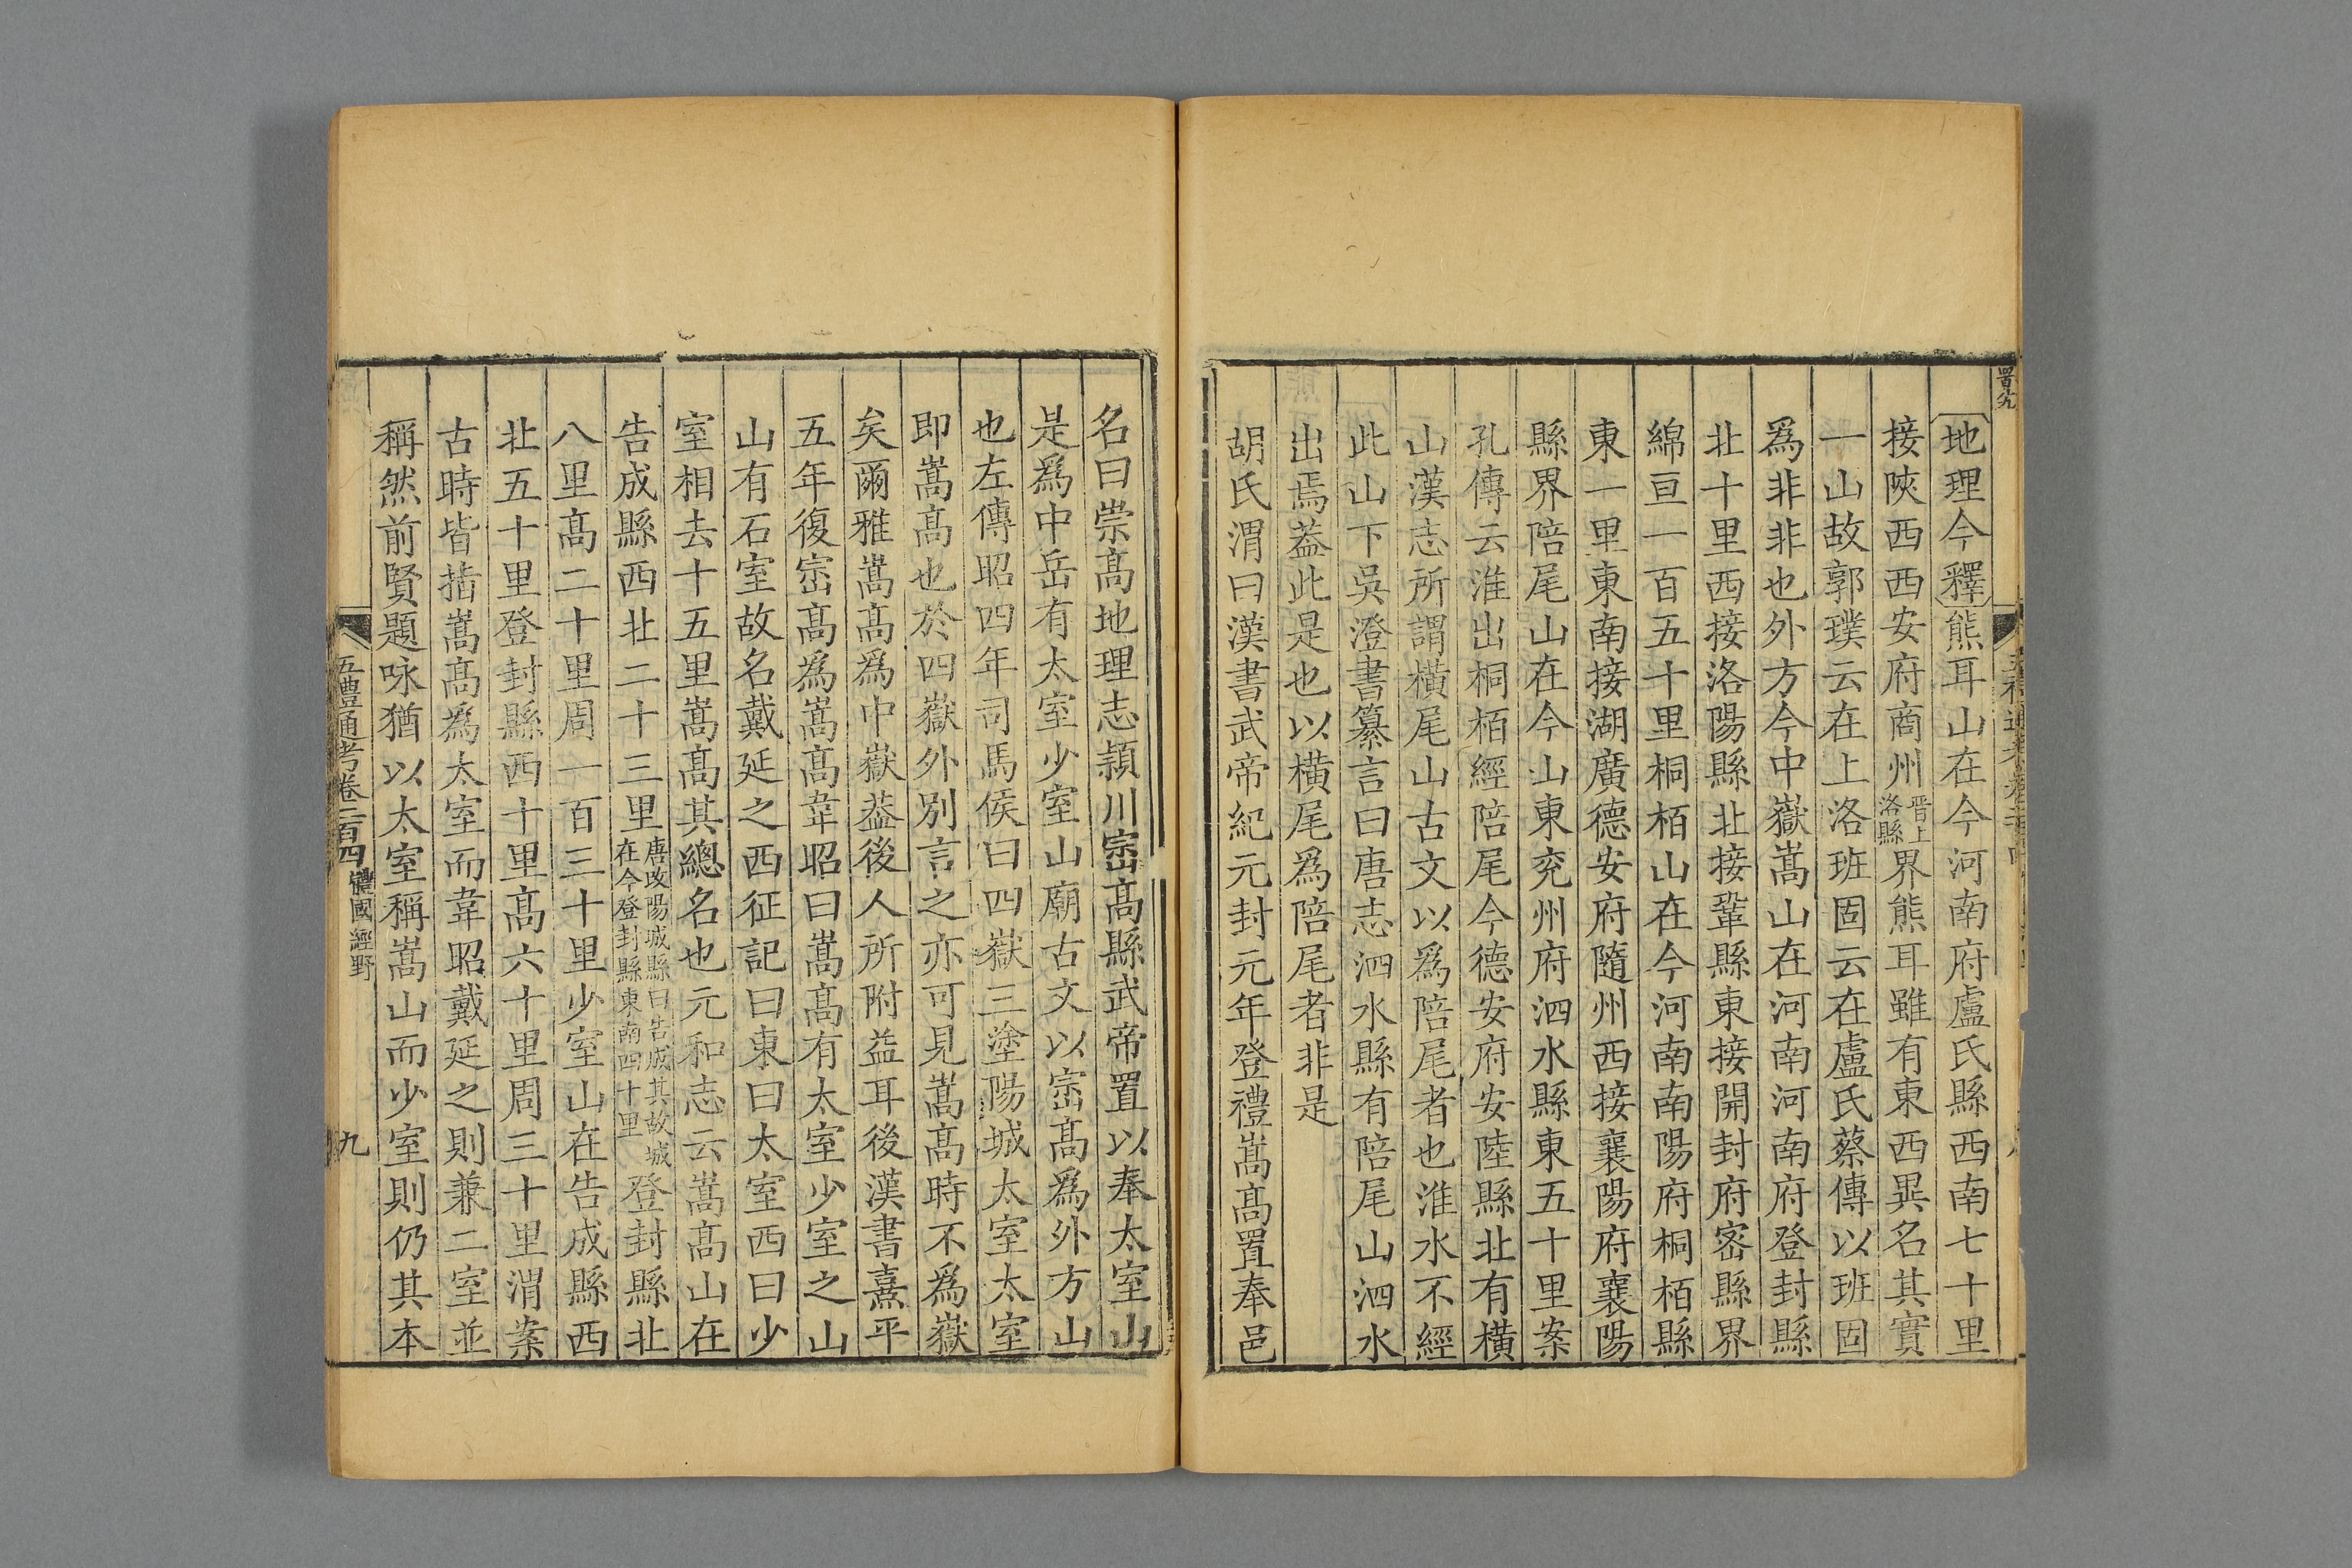 地理今釋熊耳山在今河南府盧氏縣西南七十里
接陜西西安府商州晉上洛縣界熊耳雖有東西異名其實
一山故郭璞云在上洛班固云在盧氏蔡傳以班固
爲非非也外方今中嶽嵩山在河南河南府登封縣
北十里西接洛陽縣北接鞏縣東接開封府密縣界
綿亘一百五十里桐栢山在今河南南陽府桐栢縣
東一里東南接湖廣德安府隨州西接襄陽府襄陽
縣界陪尾山在今山東兖州府泗水縣東五十里案
孔傳云淮出桐栢經陪尾今德安府安陸縣北有橫
山漢志所謂橫尾山古文以爲陪尾者也淮水不經
此山下吳澄書纂言曰唐志泗水縣有陪尾山泗水
出焉葢此是也以橫尾爲陪尾者非是
胡氏渭曰漢書武帝紀元封元年登禮嵩髙置奉邑
名曰崇髙地理志潁川崈髙縣武帝置以奉太室山
是爲中岳有太室少室山廟古文以崈髙爲外方山
也左傳昭四年司馬侯曰四嶽三塗陽城太室太室
即嵩髙也於四嶽外別言之亦可見嵩髙時不爲嶽
矣爾雅嵩髙爲中嶽葢後人所附益耳後漢書熹平
五年復崈髙爲嵩髙韋昭曰嵩髙有太室少室之山
山有石室故名戴延之西征記曰東曰太室西曰少
室相去十五里嵩髙其總名也元和志云嵩髙山在
告成縣西北二十三里唐改陽城縣曰告成其故城在今登封縣東南四十里登封縣北
八里髙二十里周一百三十里少室山在告成縣西
北五十里登封縣西十里髙六十里周三十里渭案
古時皆指嵩髙爲太室而韋昭戴延之則兼二室並
稱然前賢題咏猶以太室稱嵩山而少室則仍其本
五禮通考卷二百四 體國經野
九